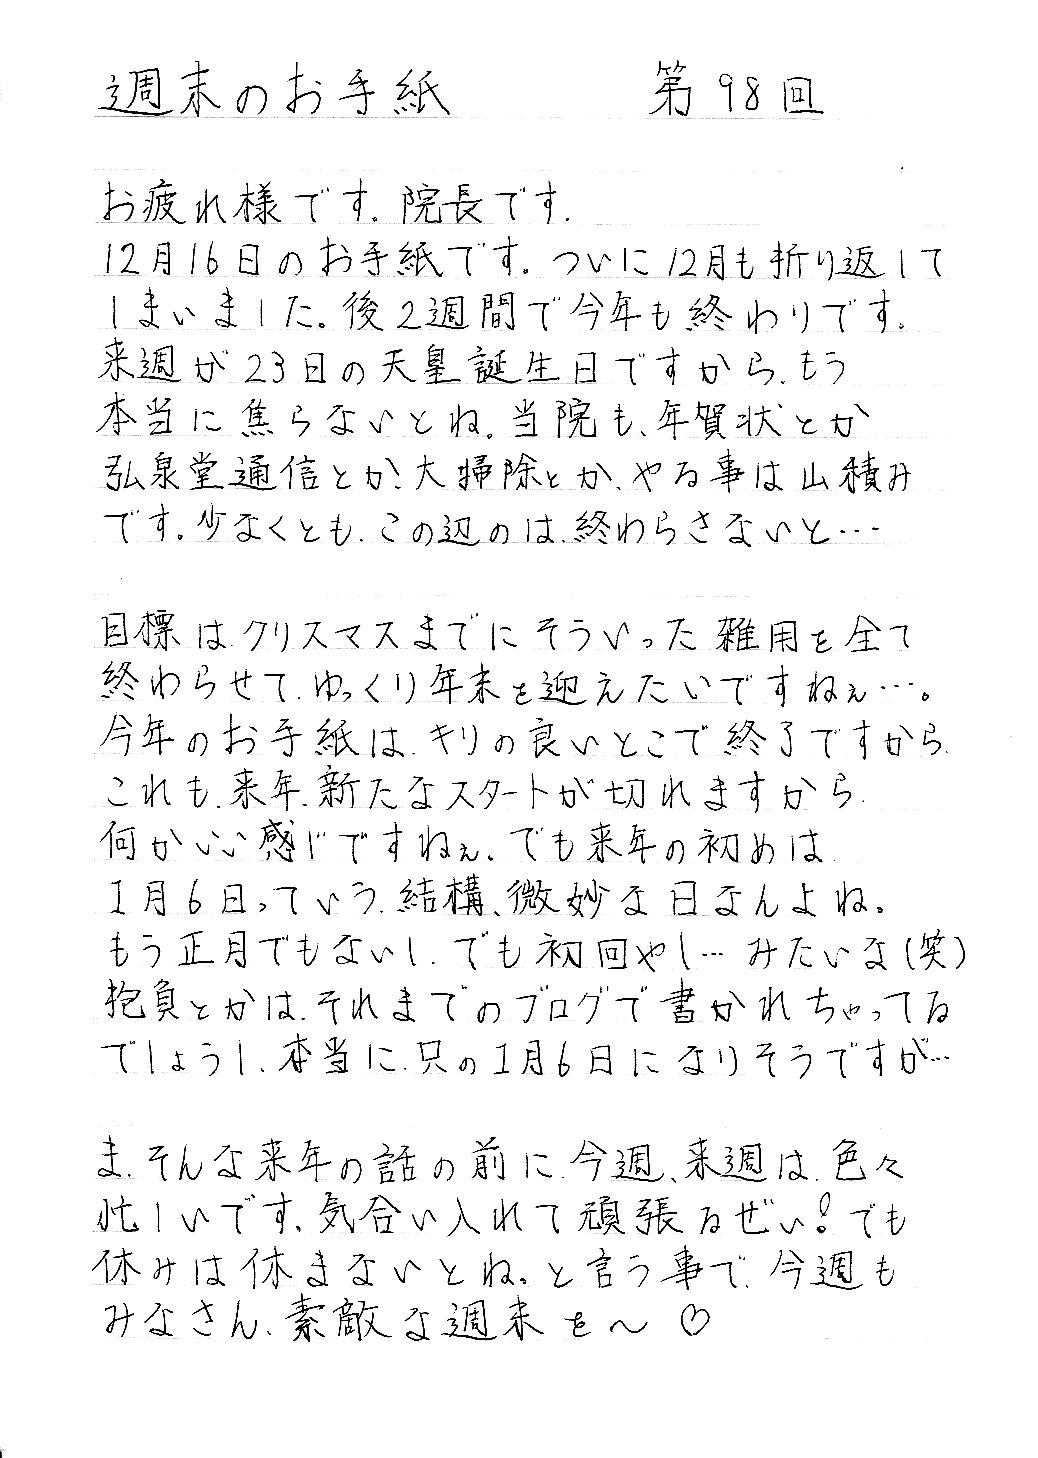 週末のお手紙 第98回
お疲れ様です。院長です。
12月16日のお手紙です。ついに12月も折り返して
しまいました。後2週間で今年も終わりです。
来週が23日の天皇誕生日ですから、もう
本当に焦らないとね。当院も、年賀状とか
弘泉堂通信とか、大掃除とか、やる事は山積み
です。少なくとも、この辺のは、終わらさないと…
目標は、クリスマスまでにそういった雑用を全て
終わらせて、ゆっくり年末を迎えたいですねぇ…。
今年のお手紙は、キリの良いとこで終了ですから、
これも、来年、新たなスタートが切れますから、
何かいい感じですねぇ、でも来年の初めは、
1月6日っていう、結構、微妙な日なんよね。
もう正月でもないし、でも初回やし…みたいな(笑)
抱負とかは、それまでのブログで書かれちゃってる
でしょうし、本当に、只の1月6日になりそうですが…
ま、そんな来年の話の前に、今週、来週は、色々
忙しいです、気合い入れて頑張るぜい!でも
休みは休まないとね。と言う事で、今週も
みなさん、素敵な週末を〜♡